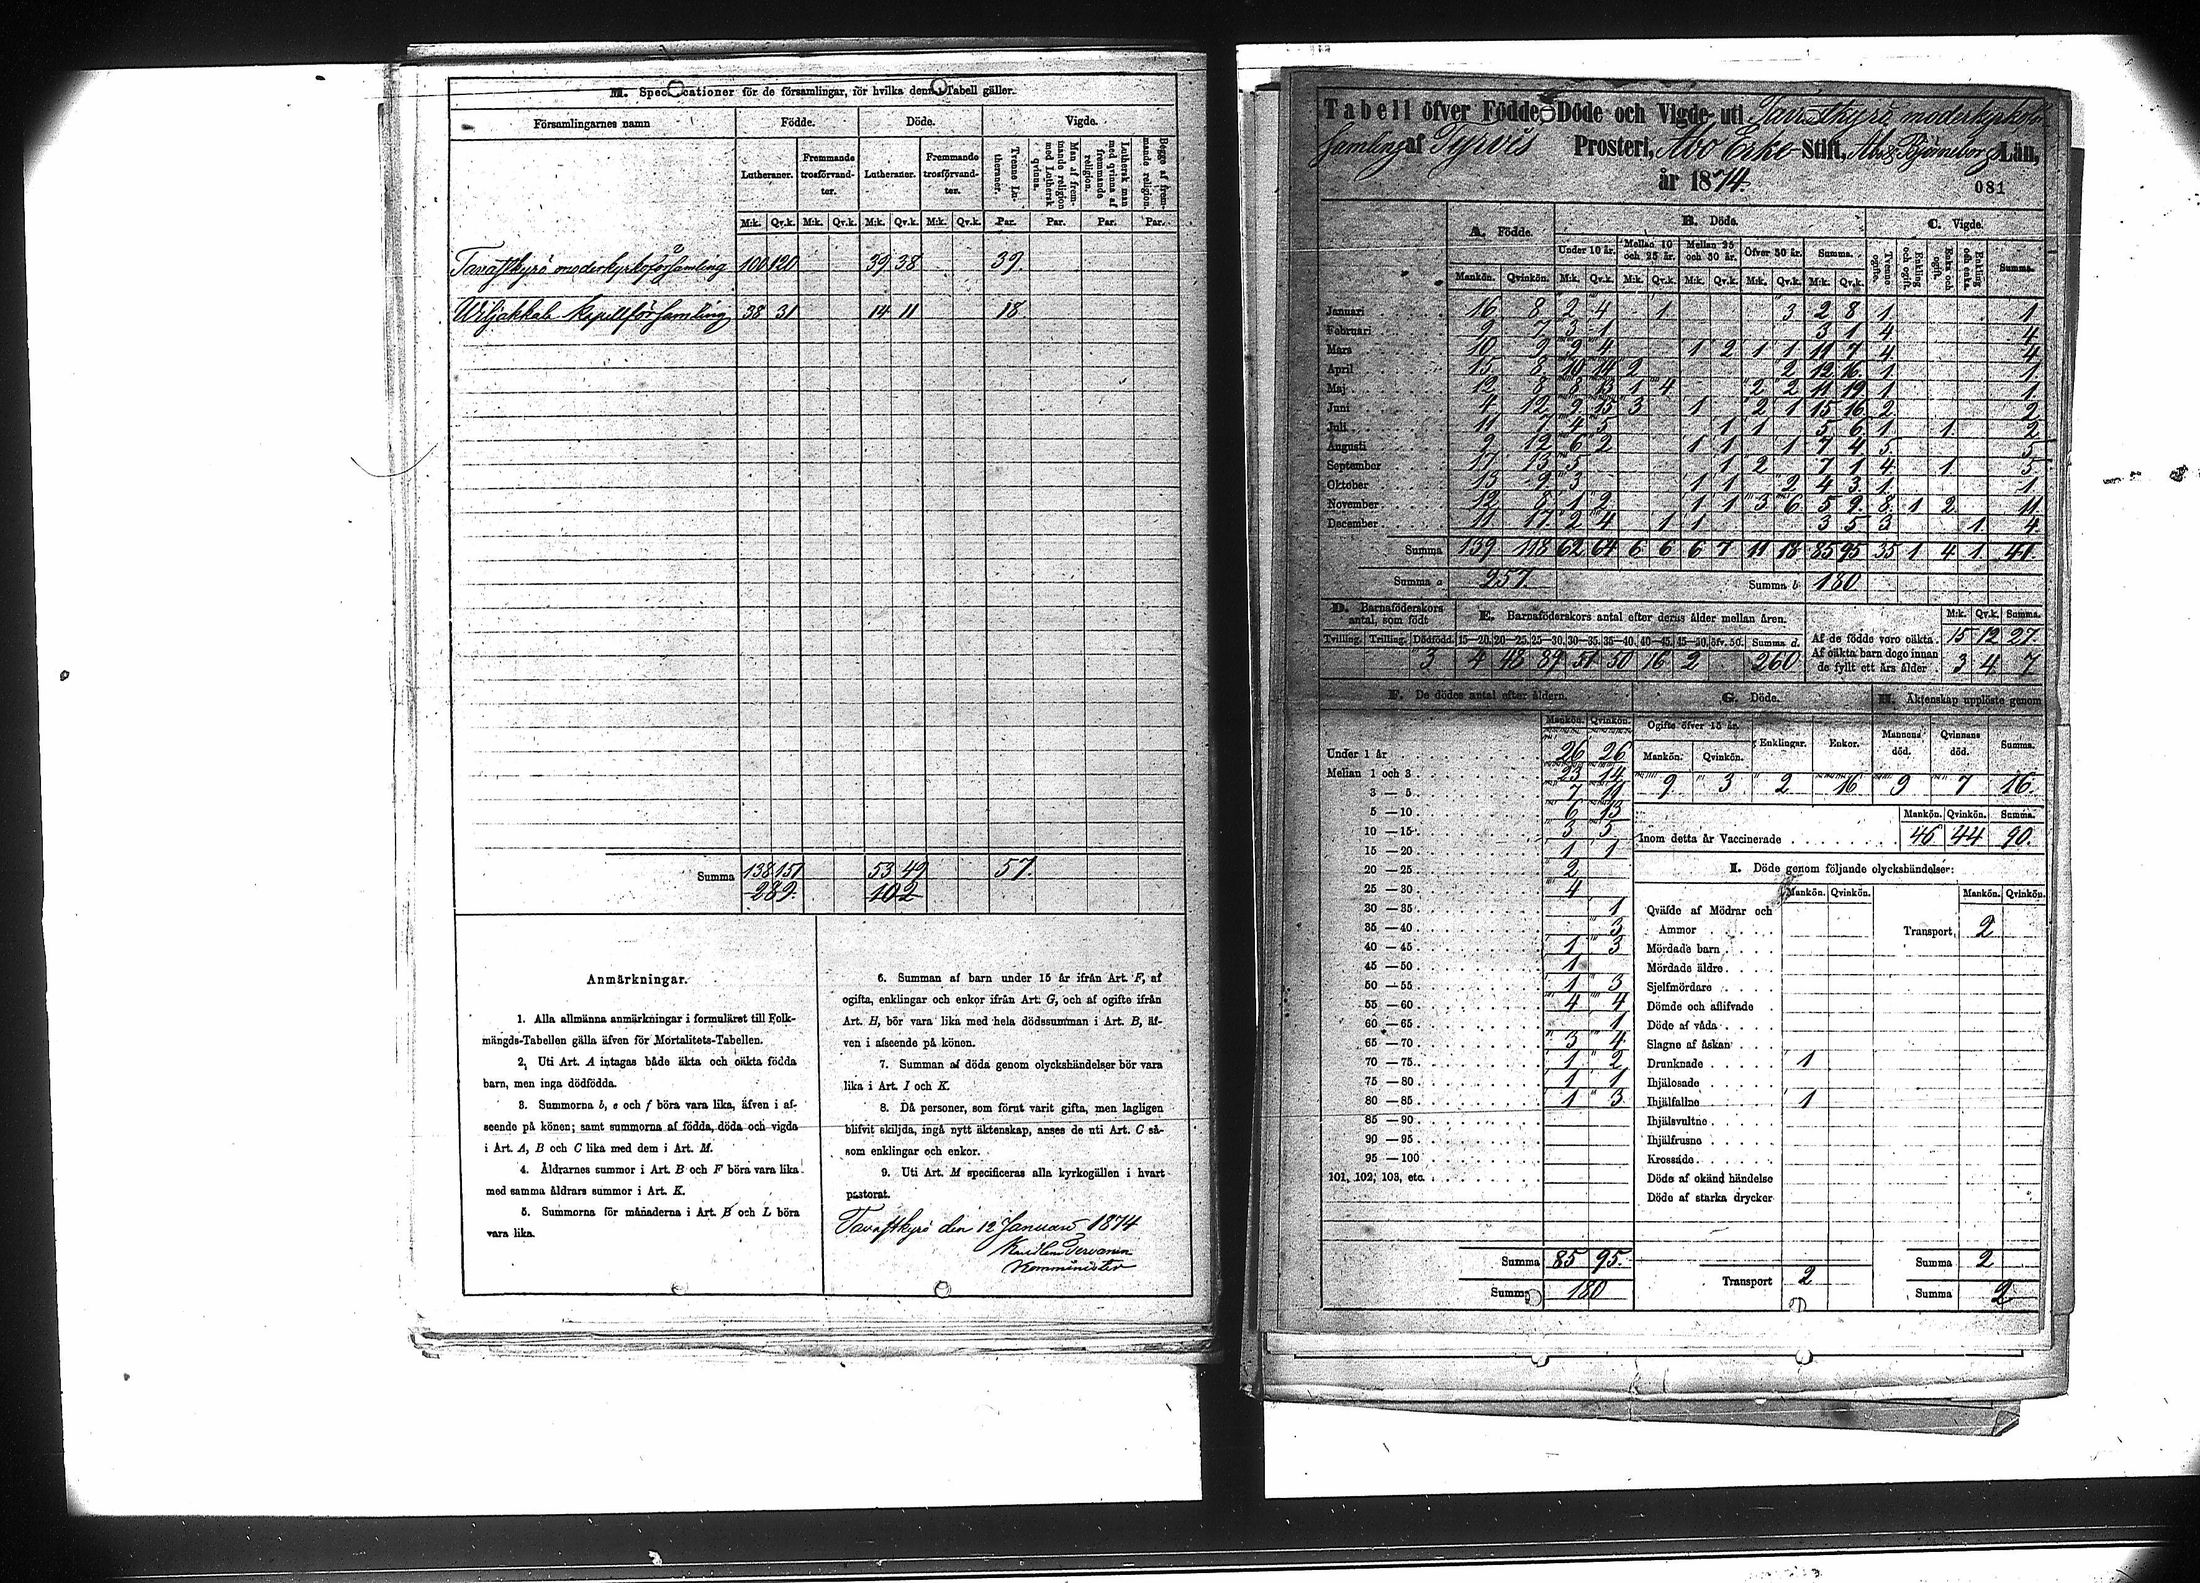 M. Specificationer för de församlingar, för hvilka denna Tabell gäller.
Församlingarnes namn Födde. Döde. Vigde.
Lutheraner. Fremmande trosförvandter. Lutheraner. Fremmande trosförvandter. Tvenne Lutheraner. Man af fremmande religion med Luthersk qvinna. Luthersk man med qvinna af fremmande religion. Begge af fremmande religion.
M:k. Qv.k. M:k. Qv.k. M:k. Qv.k. M:k. Qv.k. Par. Par. Par. Par.
Tavastkyrö moderkyrkoförsamling 100 120 39 38 39
Wiljakkala kapellförsamling 38 31 14 11 18
Summa 138 151 53 49 57
289 102
Anmärkningar.
1. Alla allmänna anmärkningar i formuläret till Folk-
mängds-Tabellen gälla äfven för Mortalitets-Tabellen.
2. Uti Art. A intagas både äkta och oäkta födda
barn, men inga dödfödda.
3. Summorna b, e och f böra vara lika, äfven i af-
seende på könen; samt summorna af födda, döda och vigda
i Art. A, B och C lika med dem i Art. M.
4. Åldrarnes summor i Art. B och F böra vara lika
med samma åldrars summor i Art. K.
5. Summorna för månaderna i Art. B och L böra
vara lika.
6. Summan af barn under 15 år ifrån Art. F, af
ogifta, enklingar och enkor ifrån Art. G, och af ogifte ifrån
Art. H, bör vara lika med hela dödssumman i Art. B, äf-
ven i afseende på könen.
7. Summan af döda genom olyckshändelser bör vara
lika i Art. I och K.
8. Då personer, som förut varit gifta, men lagligen
blifvit skiljda, ingå nytt äktenskap, anses de uti Art. C så-
som enklingar och enkor.
9. Uti Art. M specificeras alla kyrkogällen i hvart
pastorat.
Tavastkyrö den 12 Januari 1874
Kommin­ister
Tabell öfver Födde, Döde och Vigde uti Tavastkyrö moderkyrkoför
samling af Tyrvis Prosteri, Åbo Erke-Stift, Åbo & Björneborgs Län,
år 1874.
081
A. Födde. B. Döde. C. Vigde.
Under 10 år. Mellan 10 och 25 år. Mellan 25 och 50 år. Öfver 50 år. Summa. Tvenne ogifte. Enkling och ogift. Enka och ogift. Enkling och enka Summa.
Mankön. Qvinkön. M:k. Qv.k. M:k. Qv.k. M:k. Qv.k. M:k. Qv.k. M:k. Qv.k.
Januari 16 8 2 4 1 3 2 8 1 1
Februari 9 7 3 1 3 1 4 4
Mars 10 9 9 4 1 2 1 1 11 7 4 4
April 15 8 10 14 2 2 12 16 1 1
Maj 12 8 8 13 1 4 2 2 11 19 1 1
Juni 4 12 9 15 3 1 2 1 15 16 2 2
Juli 11 7 4 5 1 1 5 6 1 1 2
Augusti 9 12 6 2 1 1 1 7 4 5 5
September 17 13 5 1 2 7 1 4 1 5
Oktober 13 9 3 1 1 2 4 3 1 1
November 12 8 1 2 1 1 3 6 5 9 8 1 2 11
December 11 17 2 4 1 1 3 5 3 1 4
Summa 139 118 62 64 6 6 6 7 11 18 85 95 35 1 4 1 41
Summa a 257 Summa b 180
D. Barnaföderskors antal, som födt E. Barnaföderskors antal efter deras ålder mellan åren. M:k. Qv.k. Summa.
Tvilling. Trilling. Dödfödd. 15—20. 20—25. 25—30. 30—35. 35—40. 40—45. 45—50. öfv. 50. Summa d.
3 4 48 89 51 50 16 2 260
Af de födde voro oäkta 15 12 27
Af oäkta barn dogo innan
de fyllt ett års ålder 3 4 7
F. De dödes antal efter åldern. G. Döde. H. Äktenskap upplöste genom
Mankön. Qvinkön. Ogifte öfver 15 år. Enklingar. Enkor. Mannens död. Qvinnans död. Summa.
Mankön. Qvinkön.
9 3 2 16 9 7 16
Under 1 år 26 26
Mellan 1 och 3 23 14
3 — 5 7 11
5 — 10 6 13
10 — 15 3 5
15 — 20 1 1
20 — 25 2
25 — 30 4
30 — 35 1
35 — 40 3
40 — 45 1 3
45 — 50 1
50 — 55 1 3
55 — 60 4 4
60 — 65 1
65 — 70 3 4
70 — 75 1 2
75 — 80 1 1
80 — 85 1 3
85 — 90
90 — 95
95 — 100
101, 102, 103, etc.
Summa 85 95
Summa 180
Mankön. Qvinkön. Summa.
Inom detta år Vaccinerade 46 44 90
I. Döde genom följande olyckshändelser:
Mankön. Qvinkön. Mankön. Qvinkön.
Qväfde af Mödrar och
Ammor Transport 2
Mördade barn
Mördade äldre
Sjelfmördare
Dömde och aflifvade
Döde af våda
Slagne af åskan
Drunknade 1
Ihjälosade
Ihjälfallne 1
Ihjälsvultne
Ihjälfrusne
Krossade
Döde af okänd händelse
Döde af starka drycker
Transport 2 Summa 2
Summa 2